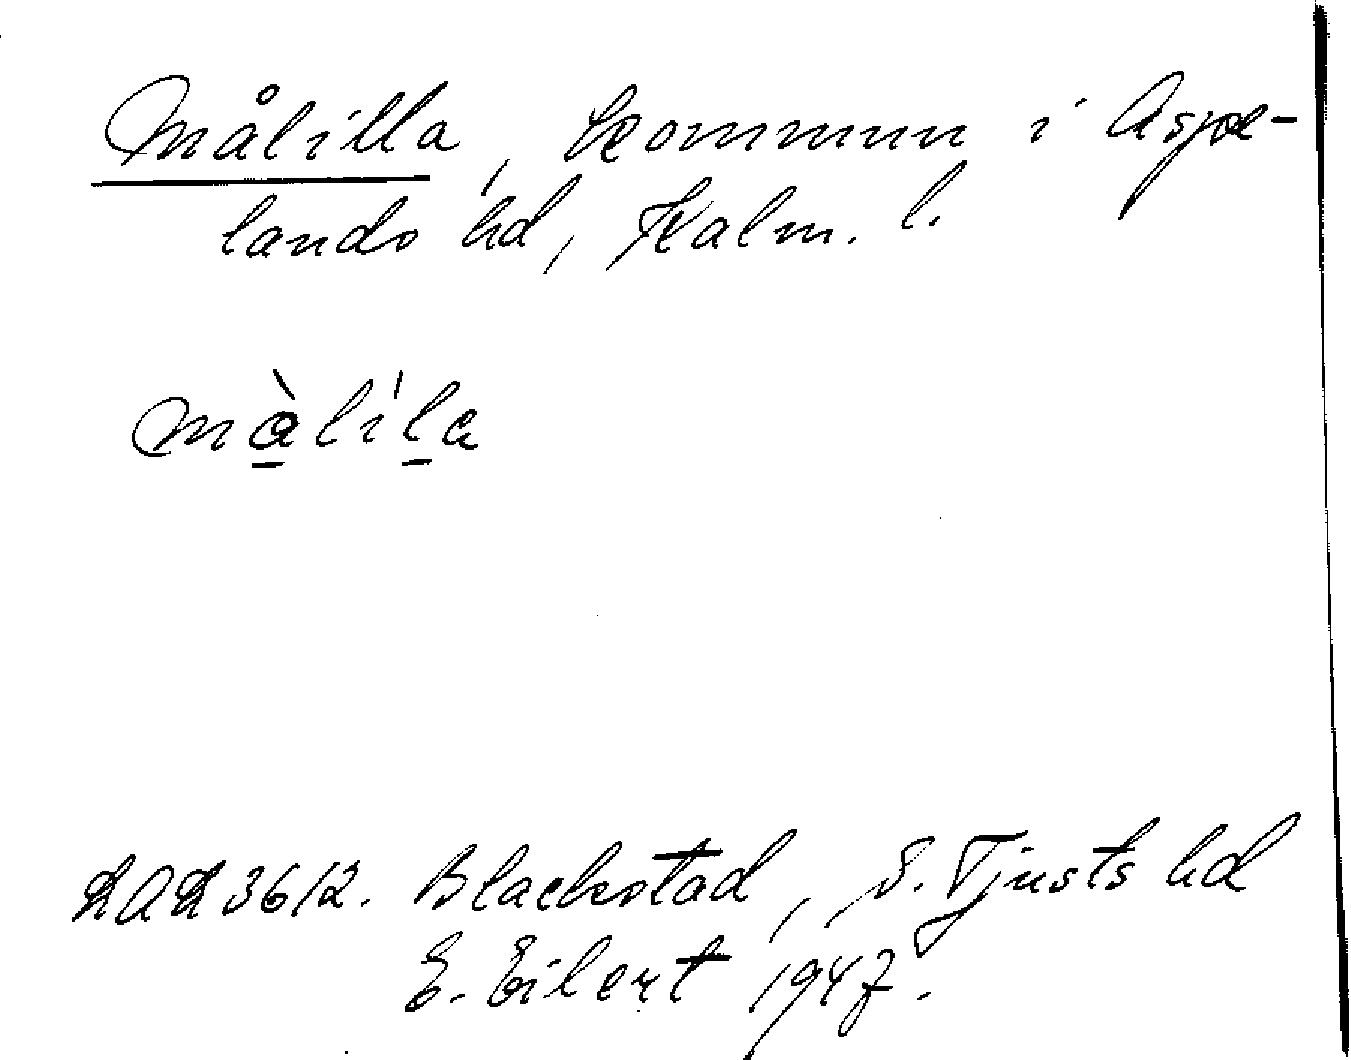 Målilla, kommun i Aspe-
lands hd, Kalm. l.
må̀lil̍a
3612. Blackstad, S. Tjusts hd
E. Eilert 1947.